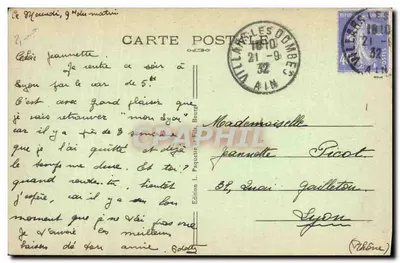 Le Mercredi, 9h du matin
CARTE POSTALE
Chère Jeannette
Je rentre ce soir à
Lyon par le car de 5h
C'est avec grand plaisir que
je vais retrouver "mon Lyon"
car il y a près de 3 semaines
que je l'ai quitté et déjà
le temps me dure. Et toi
quand rentres-tu, bientôt
j'espère, car il y a un bon
moment que je ne t'ai pas vue
Je t'envoie les meilleurs
baisers de ton amie.
VILLARS-LES-DOMBES
1810
21-9
32
AIN
1810
32
AIN
Mademoiselle
Jeannette Picot
32, Quai Gailleton
Lyon
(Rhône)